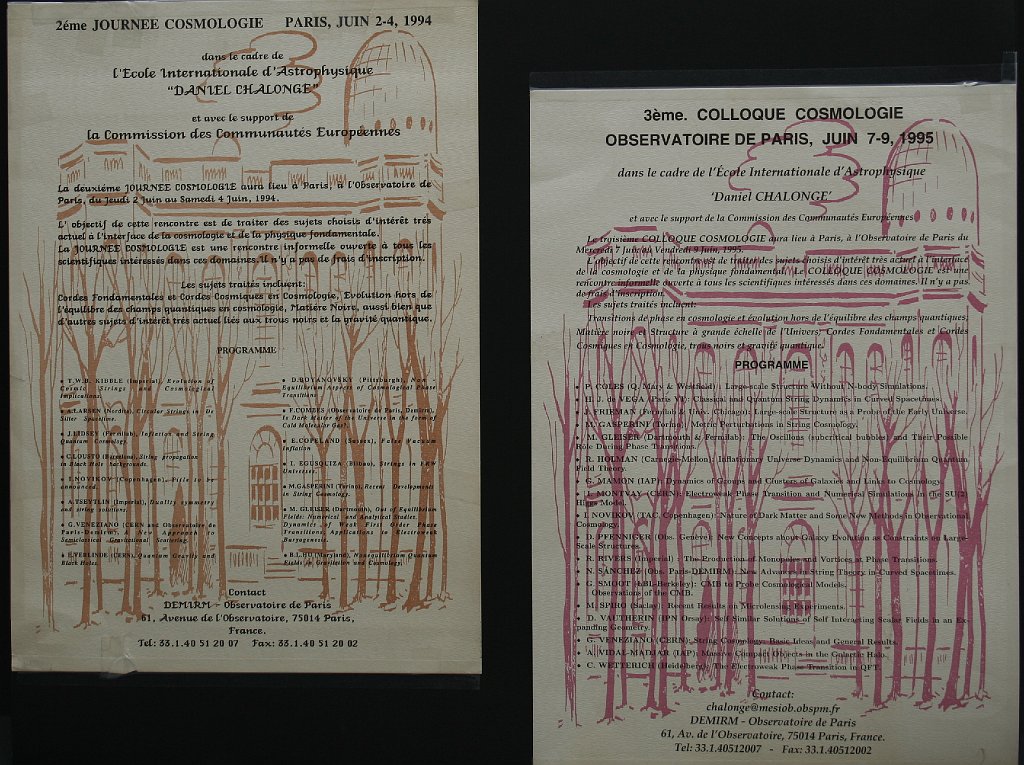 2éme JOURNEE COSMOLOGIE PARIS, JUIN 2-4, 1994
dans le cadre de
l'Ecole Internationale d'Astrophysique
"DANIEL CHALONGE"
et avec le support de
la Commission des Communautés Européennes
La deuxiéme JOURNEE COSMOLOGIE aura lieu à Paris, à l'Observatoire de
Paris, du Jeudi 2 Juin au Samedi 4 Juin, 1994.
L' objectif de cette rencontre est de traiter des sujets choisis d'intérêt très
actuel à l'interface de la cosmologie et de la physique fondamentale.
La JOURNEE COSMOLOGIE est une rencontre informelle ouverte à tous les
scientifiques intéressés dans ces domaines. Il n'y a pas de frais d'inscription.
Les sujets traités incluent:
Cordes Fondamentales et Cordes Cosmiques en Cosmologie, Evolution hors de
l'équilibre des champs quantiques en cosmologie, Matière Noire, aussi bien que
d'autres sujets d'intérêt très actuel liés aux trous noirs et la gravité quantique.
PROGRAMME
• T.W.B. KIBBLE (Imperial), Evolution of
Cosmic Strings and Cosmological
Implications.
• A.LARSEN (Nordita), Circular Strings in De
Sitter Spacetime.
• J.LIDSEY (Fermilab), Inflation and String
Quantum Cosmology.
• C.LOUSTO (Barcelona), String propagation
in Black Hole backgrounds.
• I.NOVIKOV (Copenhagen), Title to be
announced.
• A.TSEYTLIN (Imperial), Duality symmetry
and string solutions.
• G.VENEZIANO (CERN and Observatoire de
Paris-Demirm), A New Approach to
Semiclassical Gravitational Scattering.
• H.VERLINDE (CERN), Quantum Gravity and
Black Holes.
• D.BOYANOVSKY (Pittsburgh), Non-
Equilibrium Aspects of Cosmological Phase
Transitions
• F.COMBES (Observatoire de Paris, Demirm),
Is Dark Matter of the Universe in the form of
Cold Molecular Gas?
• E.COPELAND (Sussex), False Vacuum
Inflation
• I. EGUSQUIZA (Bilbao), Strings in FRW
Universes.
• M.GASPERINI (Torino), Recent Developments
in String Cosmology.
• M. GLEISER (Dartmouth), Out of Equilibrium
Fields: Numerical and Analytical Studies.
Dynamics of Weak First Order Phase
Transitions, Applications to Electroweak
Baryogenesis.
• B.L.HU (Maryland), Nonequilibrium Quantum
Fields in Gravitation and Cosmology.
Contact
DEMIRM - Observatoire de Paris
61, Avenue de l'Observatoire, 75014 Paris,
France.
Tel: 33.1.40 51 20 07 Fax: 33.1.40 51 20 02
3ème. COLLOQUE COSMOLOGIE
OBSERVATOIRE DE PARIS, JUIN 7-9, 1995
dans le cadre de l'École Internationale d'Astrophysique
'Daniel CHALONGE'
et avec le support de la Commission des Communautés Européennes
Le troisième COLLOQUE COSMOLOGIE aura lieu à Paris, à l'Observatoire de Paris du
Mercredi 7 Juin au Vendredi 9 Juin, 1995.
L'objectif de cette rencontre est de traiter des sujets choisis d'intérêt très actuel à l'interface
de la cosmologie et de la physique fondamental. Le COLLOQUE COSMOLOGIE est une
rencontre informelle ouverte à tous les scientifiques intéressés dans ces domaines. Il n'y a pas
de frais d'inscription.
Les sujets traités incluent:
Transitions de phase en cosmologie et évolution hors de l'équilibre des champs quantiques;
Matière noire et Structure à grande échelle de l'Univers; Cordes Fondamentales et Cordes
Cosmiques en Cosmologie, trous noirs et gravité quantique.
PROGRAMME
• P. COLES (Q. Mary & Westfield): Large-scale Structure Without N-body Simulations.
• H. J. de VEGA (Paris VI): Classical and Quantum String Dynamics in Curved Spacetimes.
• J. FRIEMAN (Fermilab & Univ. Chicago): Large-scale Structure as a Probe of the Early Universe.
• M. GASPERINI (Torino): Metric Perturbations in String Cosmology.
• M. GLEISER (Dartmouth & Fermilab): The Oscillons (subcritical bubbles) and Their Possible
Role During Phase Transitions.
• R. HOLMAN (Carnegie-Mellon): Inflationary Universe Dynamics and Non-Equilibrium Quantum
Field Theory.
• G. MAMON (IAP): Dynamics of Groups and Clusters of Galaxies and Links to Cosmology.
• I. MONTVAY (CERN): Electroweak Phase Transition and Numerical Simulations in the SU(2)
Higgs Model.
• I. NOVIKOV (TAC, Copenhagen): Nature of Dark Matter and Some New Methods in Observational
Cosmology.
• D. PFENNIGER (Obs. Genève): New Concepts about Galaxy Evolution as Constraints on Large-
Scale Structures.
• R. RIVERS (Imperial): The Production of Monopoles and Vortices at Phase Transitions.
• N. SÁNCHEZ (Obs. Paris-DEMIRM): New Advances in String Theory in Curved Spacetimes.
• G. SMOOT (LBL-Berkeley): CMB to Probe Cosmological Models.
Observations of the CMB.
• M. SPIRO (Saclay): Recent Results on Microlensing Experiments.
• D. VAUTHERIN (IPN Orsay): Self Similar Solutions of Self Interacting Scalar Fields in an Ex-
panding Geometry.
• G. VENEZIANO (CERN): String Cosmology: Basic Ideas and General Results.
• A. VIDAL-MADJAR (IAP): Massive Compact Objects in the Galactic Halo.
• C. WETTERICH (Heidelberg): The Electroweak Phase Transition in QFT.
Contact:
chalonge@mesiob.obspm.fr
DEMIRM - Observatoire de Paris
61, Av. de l'Observatoire, 75014 Paris, France.
Tel: 33.1.40512007 - Fax: 33.1.40512002